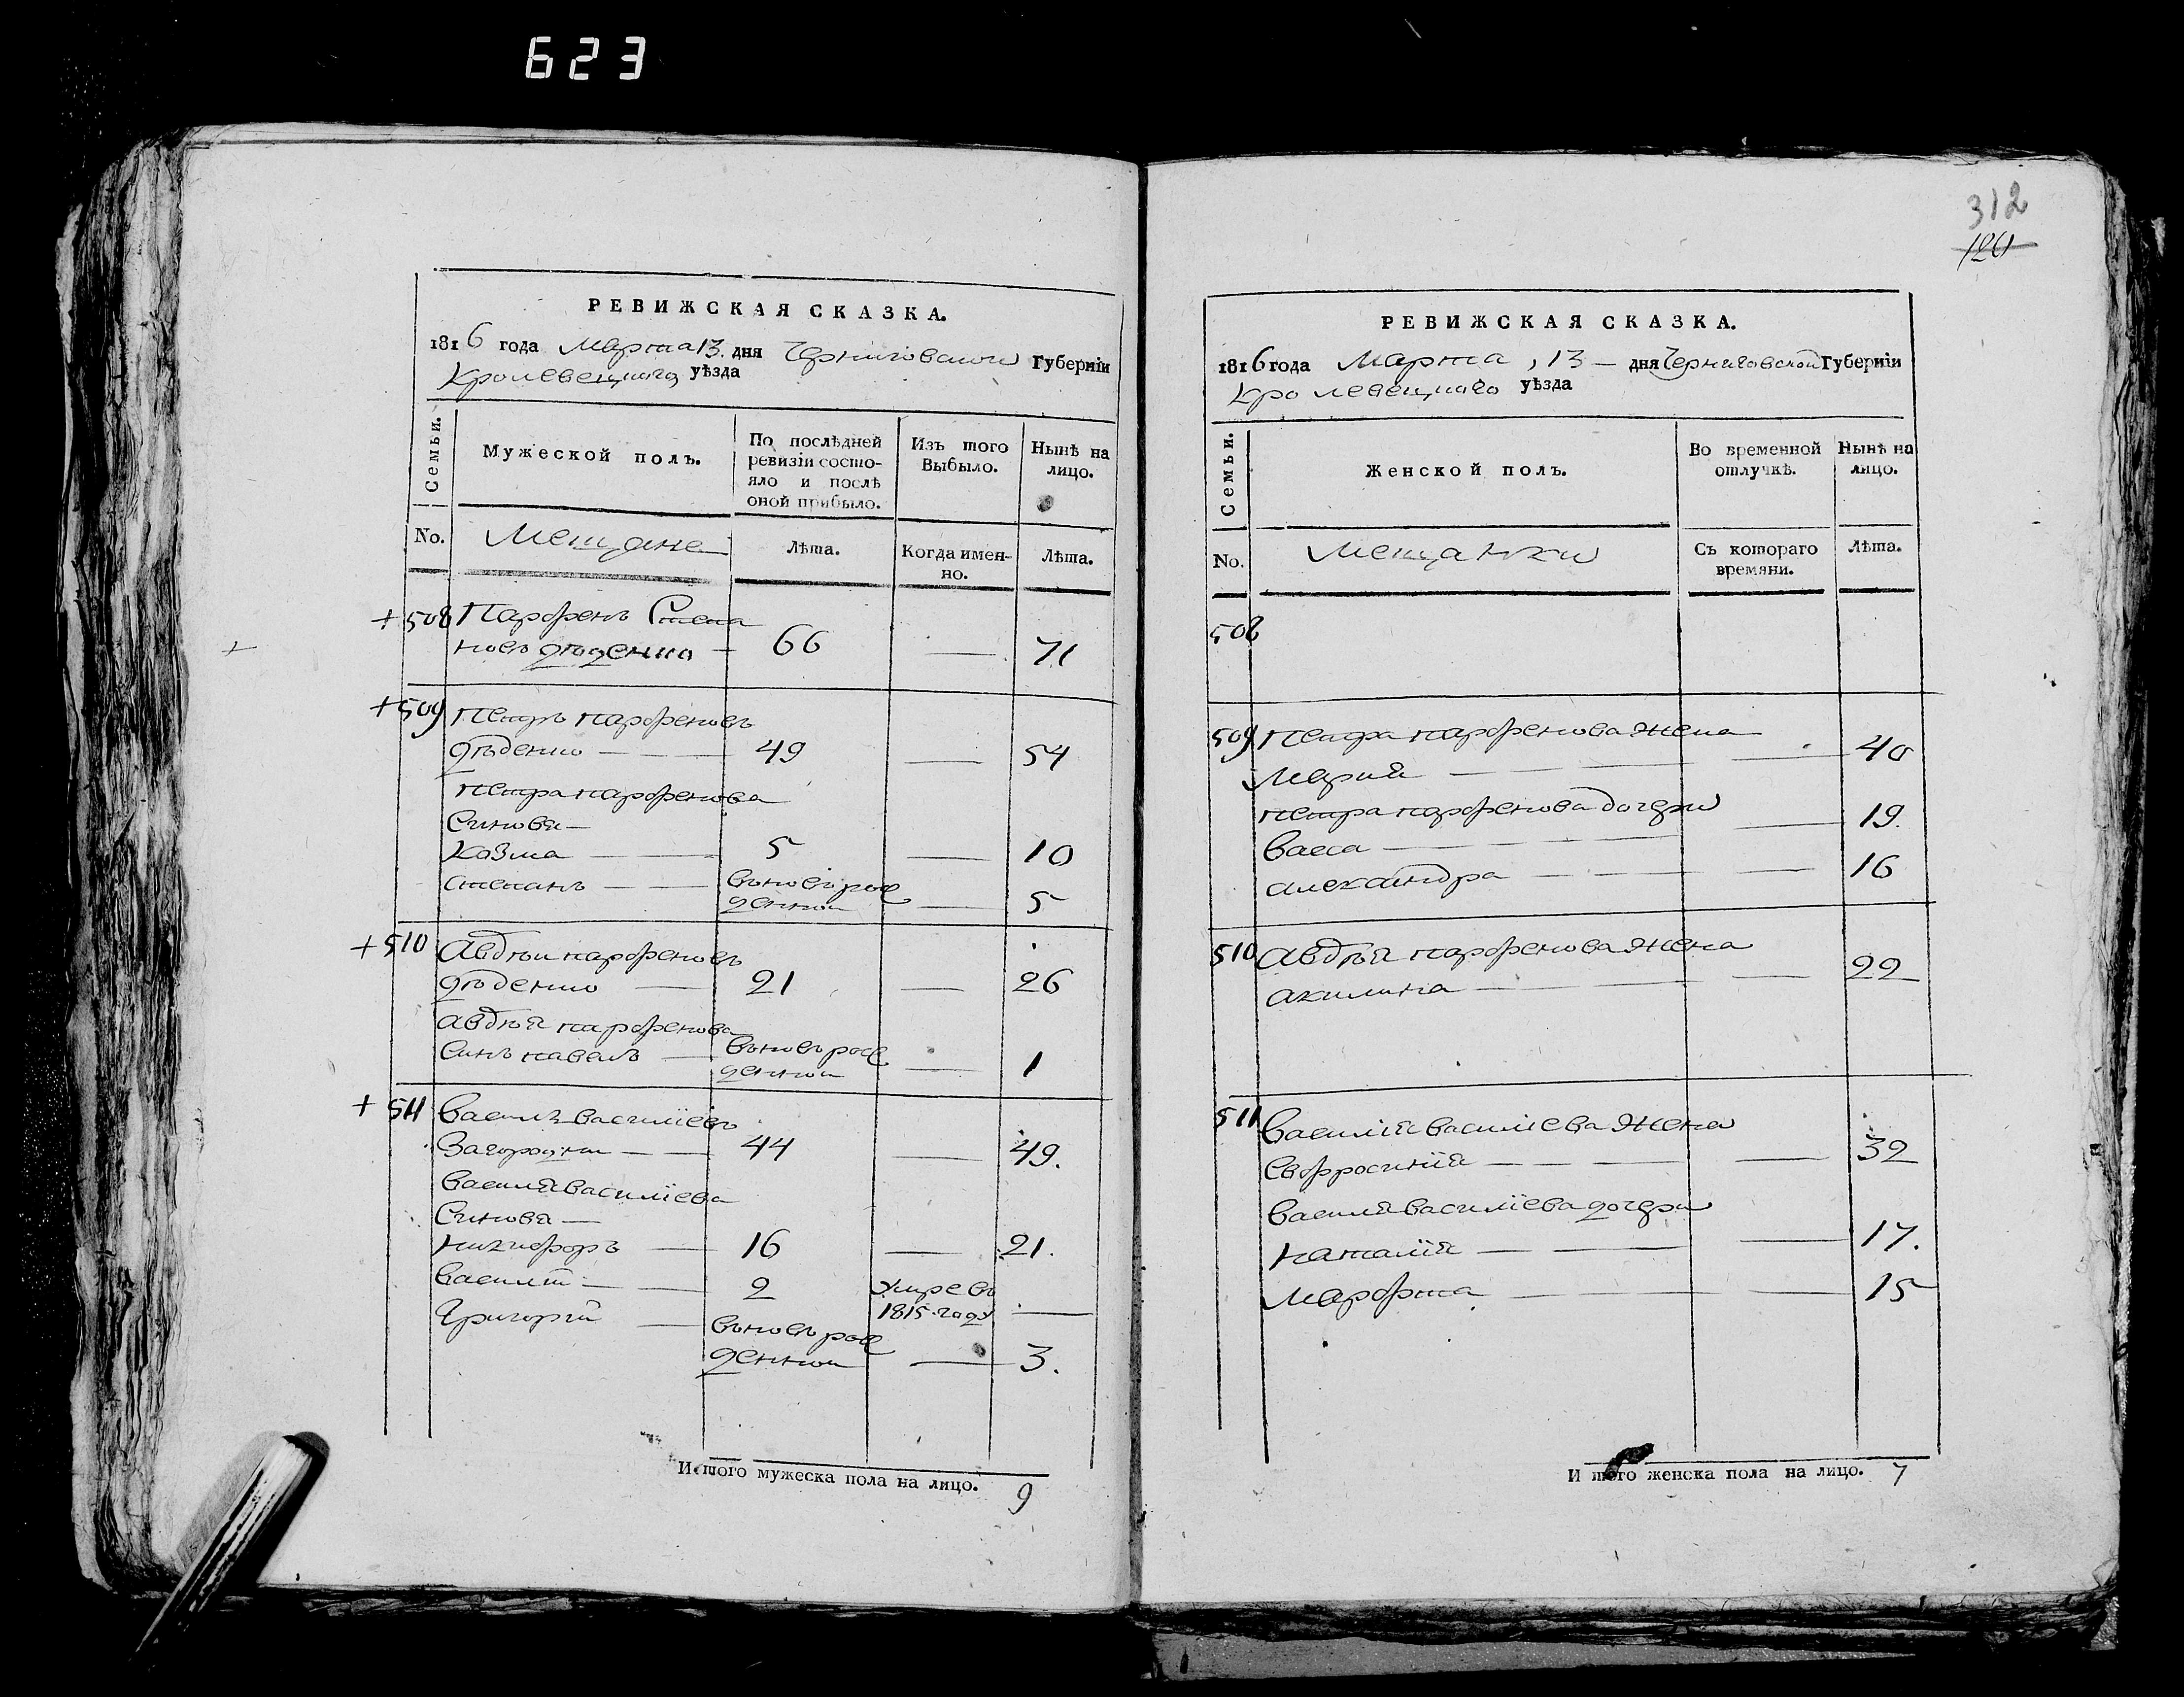 623
РЕВИЖСКАЯ СКАЗКА.
1816 года Марта 13. дня Черниговской Губерніи
Кролевецкого уѣзда
Семьи.
Мужеской полъ.
По послѣдней ревизіи состояло и послѣ оной прибыло.
Изъ того Выбыло.
Нынѣ на лицо.
No.
Мещане
Лѣта.
Когда именно.
Лѣта.
+ 508 Парфенъ Степа
новъ дѣденко — 66 — 71
+ 509 Петръ парфеновъ
дѣденко — 49 — 54
петра парфенова
Синовя —
козма — 5 — 10
степанъ — вновъ рож
денной — 5
+ 510 Авдѣи парфеновъ
дѣденко — 21 — 26
авдѣя парфенова
Синъ павелъ — вновъ рож
денной — 1
+ 511 Василъ василіевъ
Загородни — 44 — 49.
василя василіева
Синовя —
никифоръ — 16 — 21.
василѣ — 2 умре въ
1815. году —
Григорій — вновъ рож
денной — 3.
Итого мужеска пола на лицо. 9
312
120
РЕВИЖСКАЯ СКАЗКА.
1816 года Марта, 13 — дня Черниговской Губерніи
Кролевецкого уѣзда
Семьи.
Женской полъ.
Во временной отлучкѣ.
Нынѣ на лицо.
No.
Мещанки
Съ котораго времяни.
Лѣта.
508
509 Петра парфенова жена
Мария — 40
петра парфенова дочери
васса — 19.
александра — 16
510 Авдѣя парфенова жена
акилина — 22
511 василия василіева жена
Евфросиния — 32
василя василіева дочери
наталія — 17.
Марфа — 15
Итого женска пола на лицо. 7